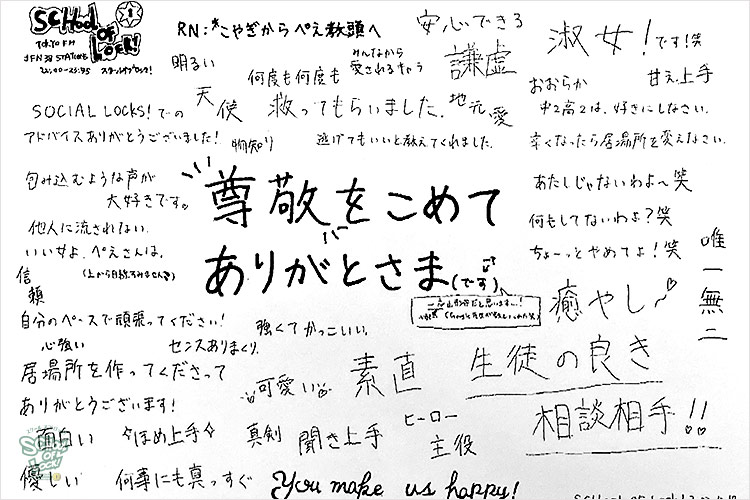 SCHOOL OF LOCK!
TOKYO FM
JFN 38 STATIONS
22:00~23:55 スクールオブロック!
RN:*こやぎから ぺえ教頭へ
安心できる
淑女!です!笑
明るい
何度も何度も
みんなから
愛されるキャラ
謙虚
おおらか
甘え上手
SOCIAL LOCKS!での
天使
救ってもらいました。
地元愛
中2高2は、好きにしなさい。
アドバイスありがとうございました!
物知り
逃げてもいいと教えてくれました。
辛くなったら居場所を変えなさい。
包み込むような声が
大好きです。
尊敬をこめて
あたしじゃないわよ〜笑
他人に流されない
いい女よ、ぺえさんは。
何もしてないわよ?笑
唯一無二
信頼
(上から目線すみません)
ありがとさま(です)
ちょーっとやめてよ!笑
癒やし
自分のペースで頑張ってください!
強くてかっこいい。
心強い
センスありまくり。
居場所を作ってくださって
ありがとうございます!
可愛い
素直
生徒の良き
相談相手!!
面白い
ほめ上手
真剣
聞き上手
ヒーロー
主役
優しい
何事にも真っすぐ
You make us happy!